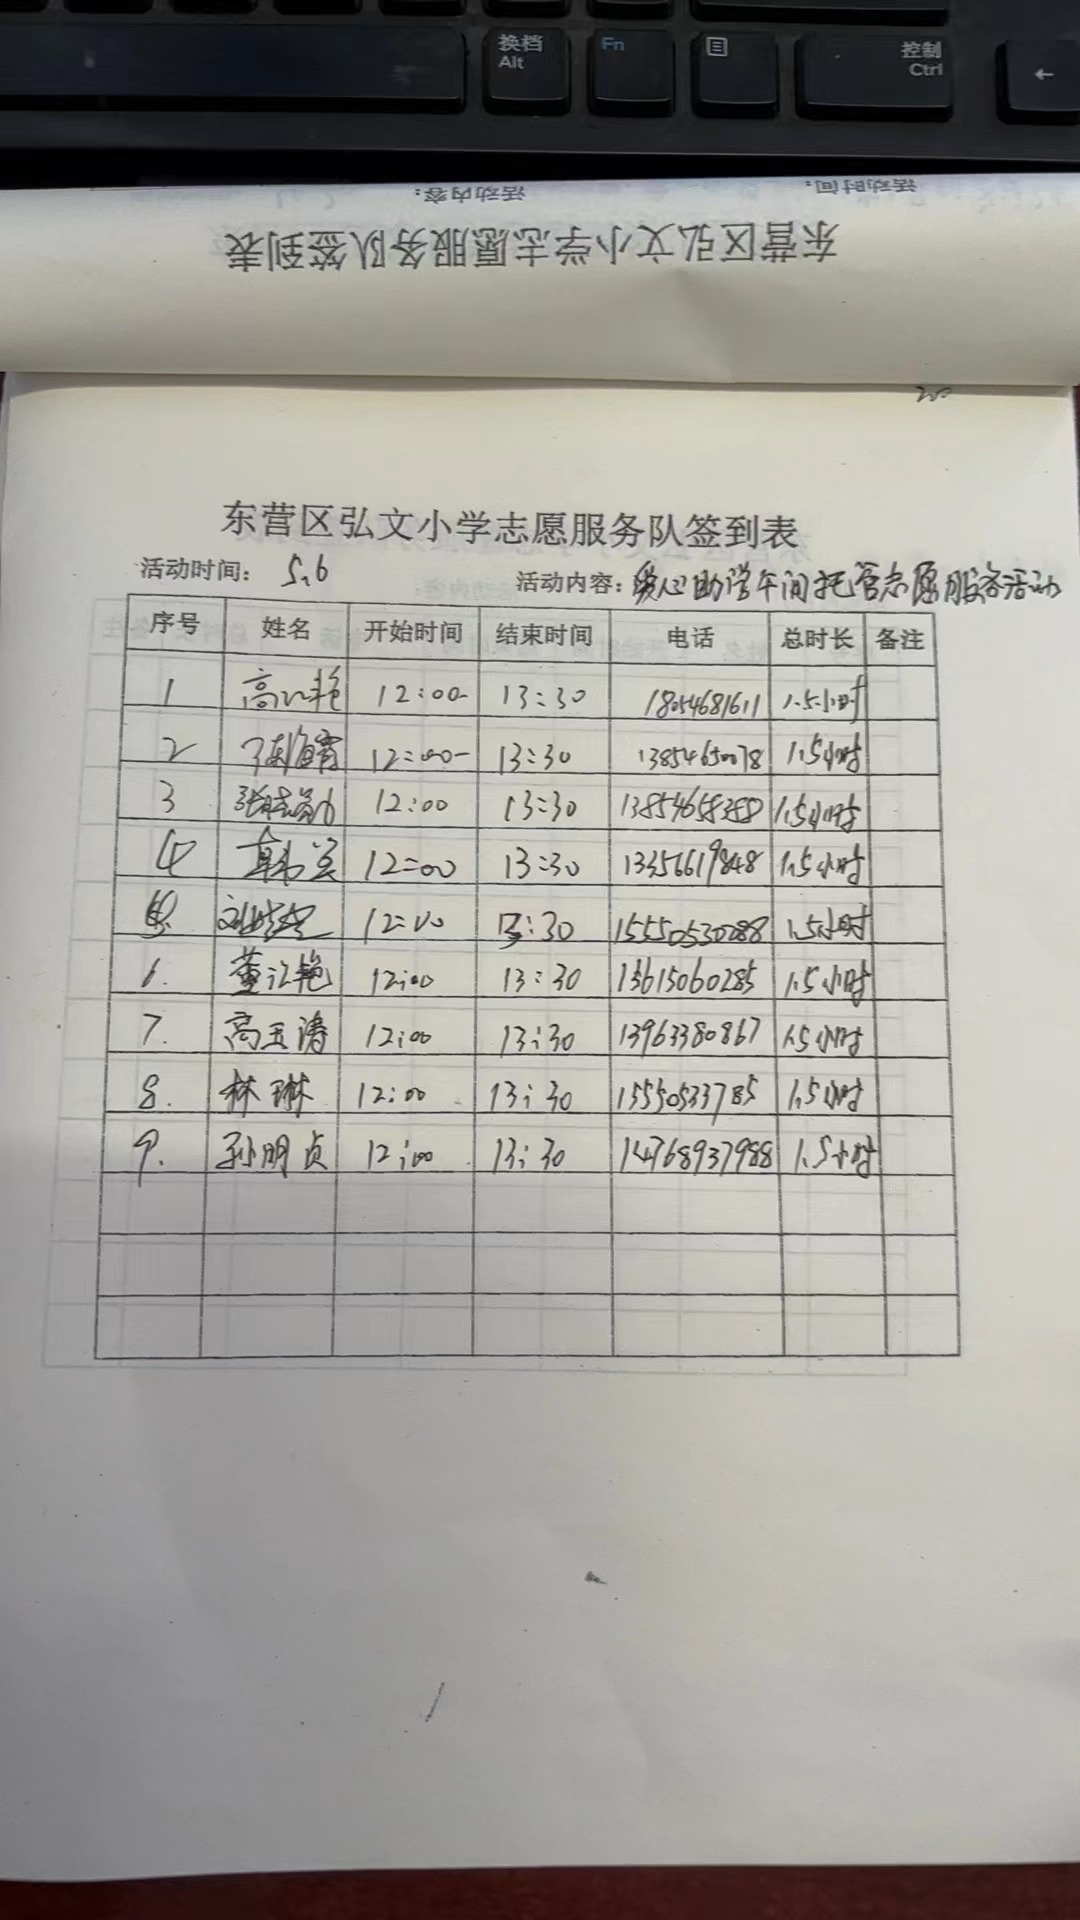 换档
Alt
Fn
控制
Ctrl
←
活动时间：
活动内容：
东营区弘文小学志愿服务队签到表
东营区弘文小学志愿服务队签到表
活动时间： 5.6
活动内容：爱心助学午间托管志愿服务活动
序号 姓名 开始时间 结束时间 电话 总时长 备注
1 12:00 13:30 18054681611 1.5小时
2 12:00 13:30 13854650078 1.5小时
3 12:00 13:30 1.5小时
4 12:00 13:30 13356619848 1.5小时
12:00 13:30 15550530288 1.5小时
6. 董江艳 12:00 13:30 13615060285 1.5小时
7. 高玉涛 12:00 13:30 13963380867 1.5小时
8. 林琳 12:00 13:30 15550533785 1.5小时
9. 孙明贞 12:00 13:30 14768937988 1.5小时